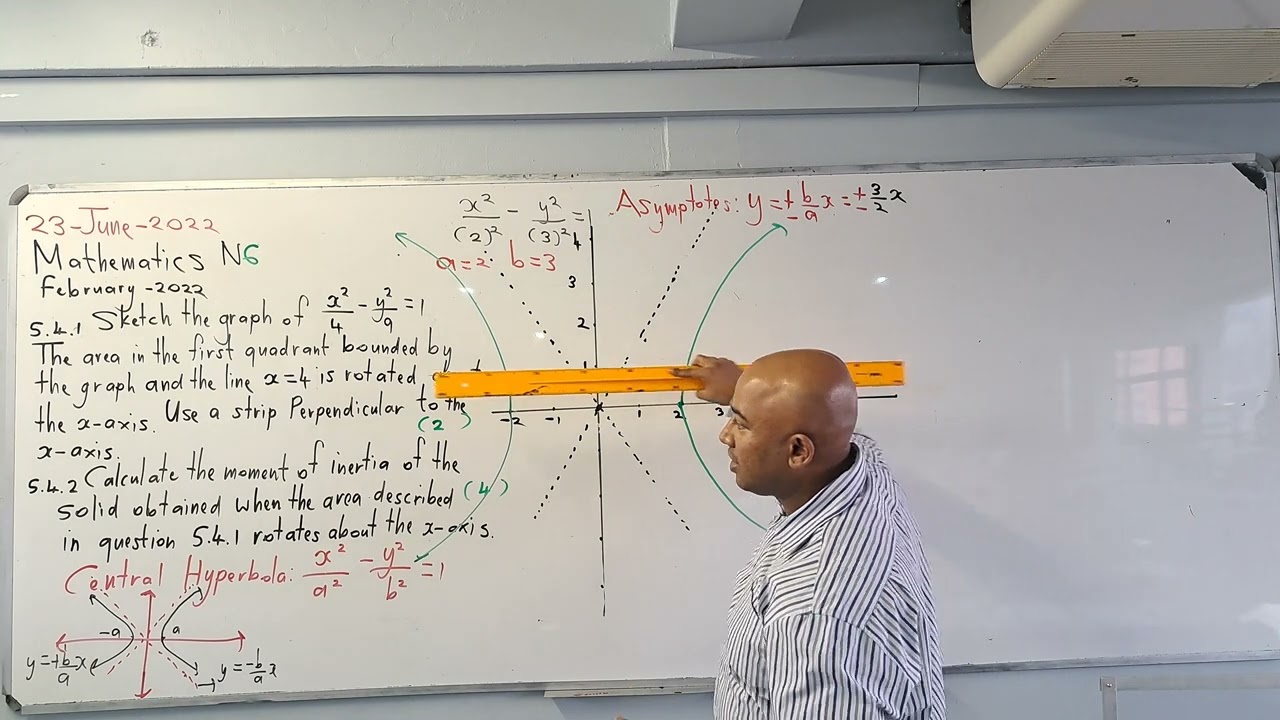 23-June-2022
Mathematics N6
February-2022
5.4.1 Sketch the graph of x²/4 - y²/9 = 1
The area in the first quadrant bounded by
the graph and the line x=4 is rotated
the x-axis. Use a strip Perpendicular to the
(2)
x-axis.
5.4.2 Calculate the moment of inertia of the
solid obtained when the area described (4)
in question 5.4.1 rotates about the x-axis.
Central Hyperbola: x²/a² - y²/b² = 1
-a a
y=+b/a x
y=-b/a x
x²/(2)² - y²/(3)² =
a=2 b=3
Asymptotes: y=±b/a x=±3/2 x
4
3
2
1
-2 -1 1 2 3